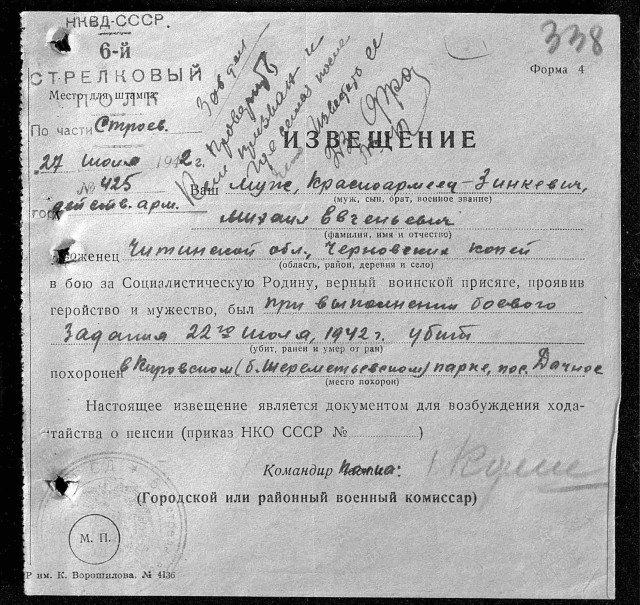 НКВД-СССР.
6-й
СТРЕЛКОВЫЙ
ПОЛК
Место для штампа
По части Строев.
27 июля 1942 г.
№ 425
действ. арм.
338
Форма 4
Проверить
Кем призван и
где семья после
Известить ее
ИЗВЕЩЕНИЕ
Ваш Муж, Красноармеец-Зинкевич,
(муж, сын, брат, военное звание)
Михаил Евгеньевич
(фамилия, имя и отчество)
уроженец Читинской обл., Черновских копей
(область, район, деревня и село)
в бою за Социалистическую Родину, верный воинской присяге, проявив
геройство и мужество, был при выполнении боевого
задания 22го июля, 1942 г. убит
(убит, ранен и умер от ран)
похоронен в Кировском (б. Шереметьевском) парке, пос. Дачное
(место похорон)
Настоящее извещение является документом для возбуждения хода-
тайства о пенсии (приказ НКО СССР № )
Командир полка:
(Городской или районный военный комиссар)
М. П.
Р им. К. Ворошилова. № 4136